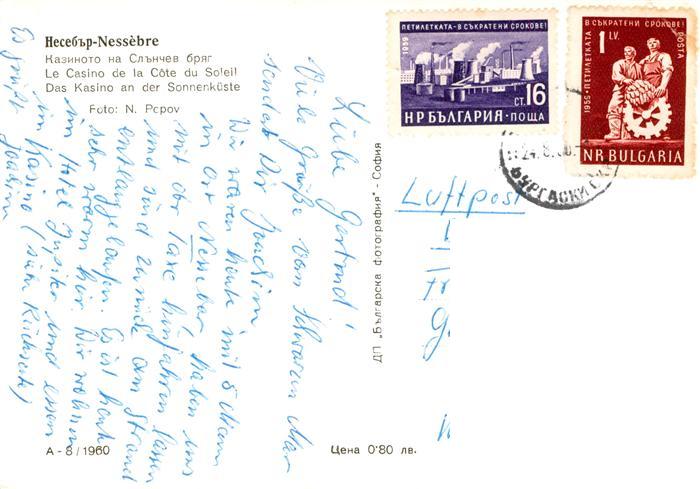 Несебър-Nessèbre
Казиното на Слънчев бряг
Le Casino de la Côte du Soleil
Das Kasino an der Sonnenküste
Foto: N. Popov
ПЕТИЛЕТКАТА - В СЪКРАТЕНИ СРОКОВЕ!
1959
СТ. 16
НР БЪЛГАРИЯ · ПОЩА
В СЪКРАТЕНИ СРОКОВЕ!
1 LV.
POSTA
1959 - ПЕТИЛЕТКАТА
NR BULGARIA
24.8.60
БУРГАСКИ
Luftpost
Liebe Gertrud!
Viele Grüße vom Schwarzen Meer
sendet Dir Joachim
Wir waren heute mit 5 Mann
im Ort Nessebar, haben uns
mit der Taxe hinfahren lassen
und sind zurück am Strand
entlanggelaufen. Es ist heute
sehr warm hier. Wir wohnen
im Hotel Jupiter und essen
im Kasino (siehe Rückseite)
Es grüßt
Joachim
ДП „Българска Фотография" - София
А - 8 / 1960
Цена 0'80 лв.